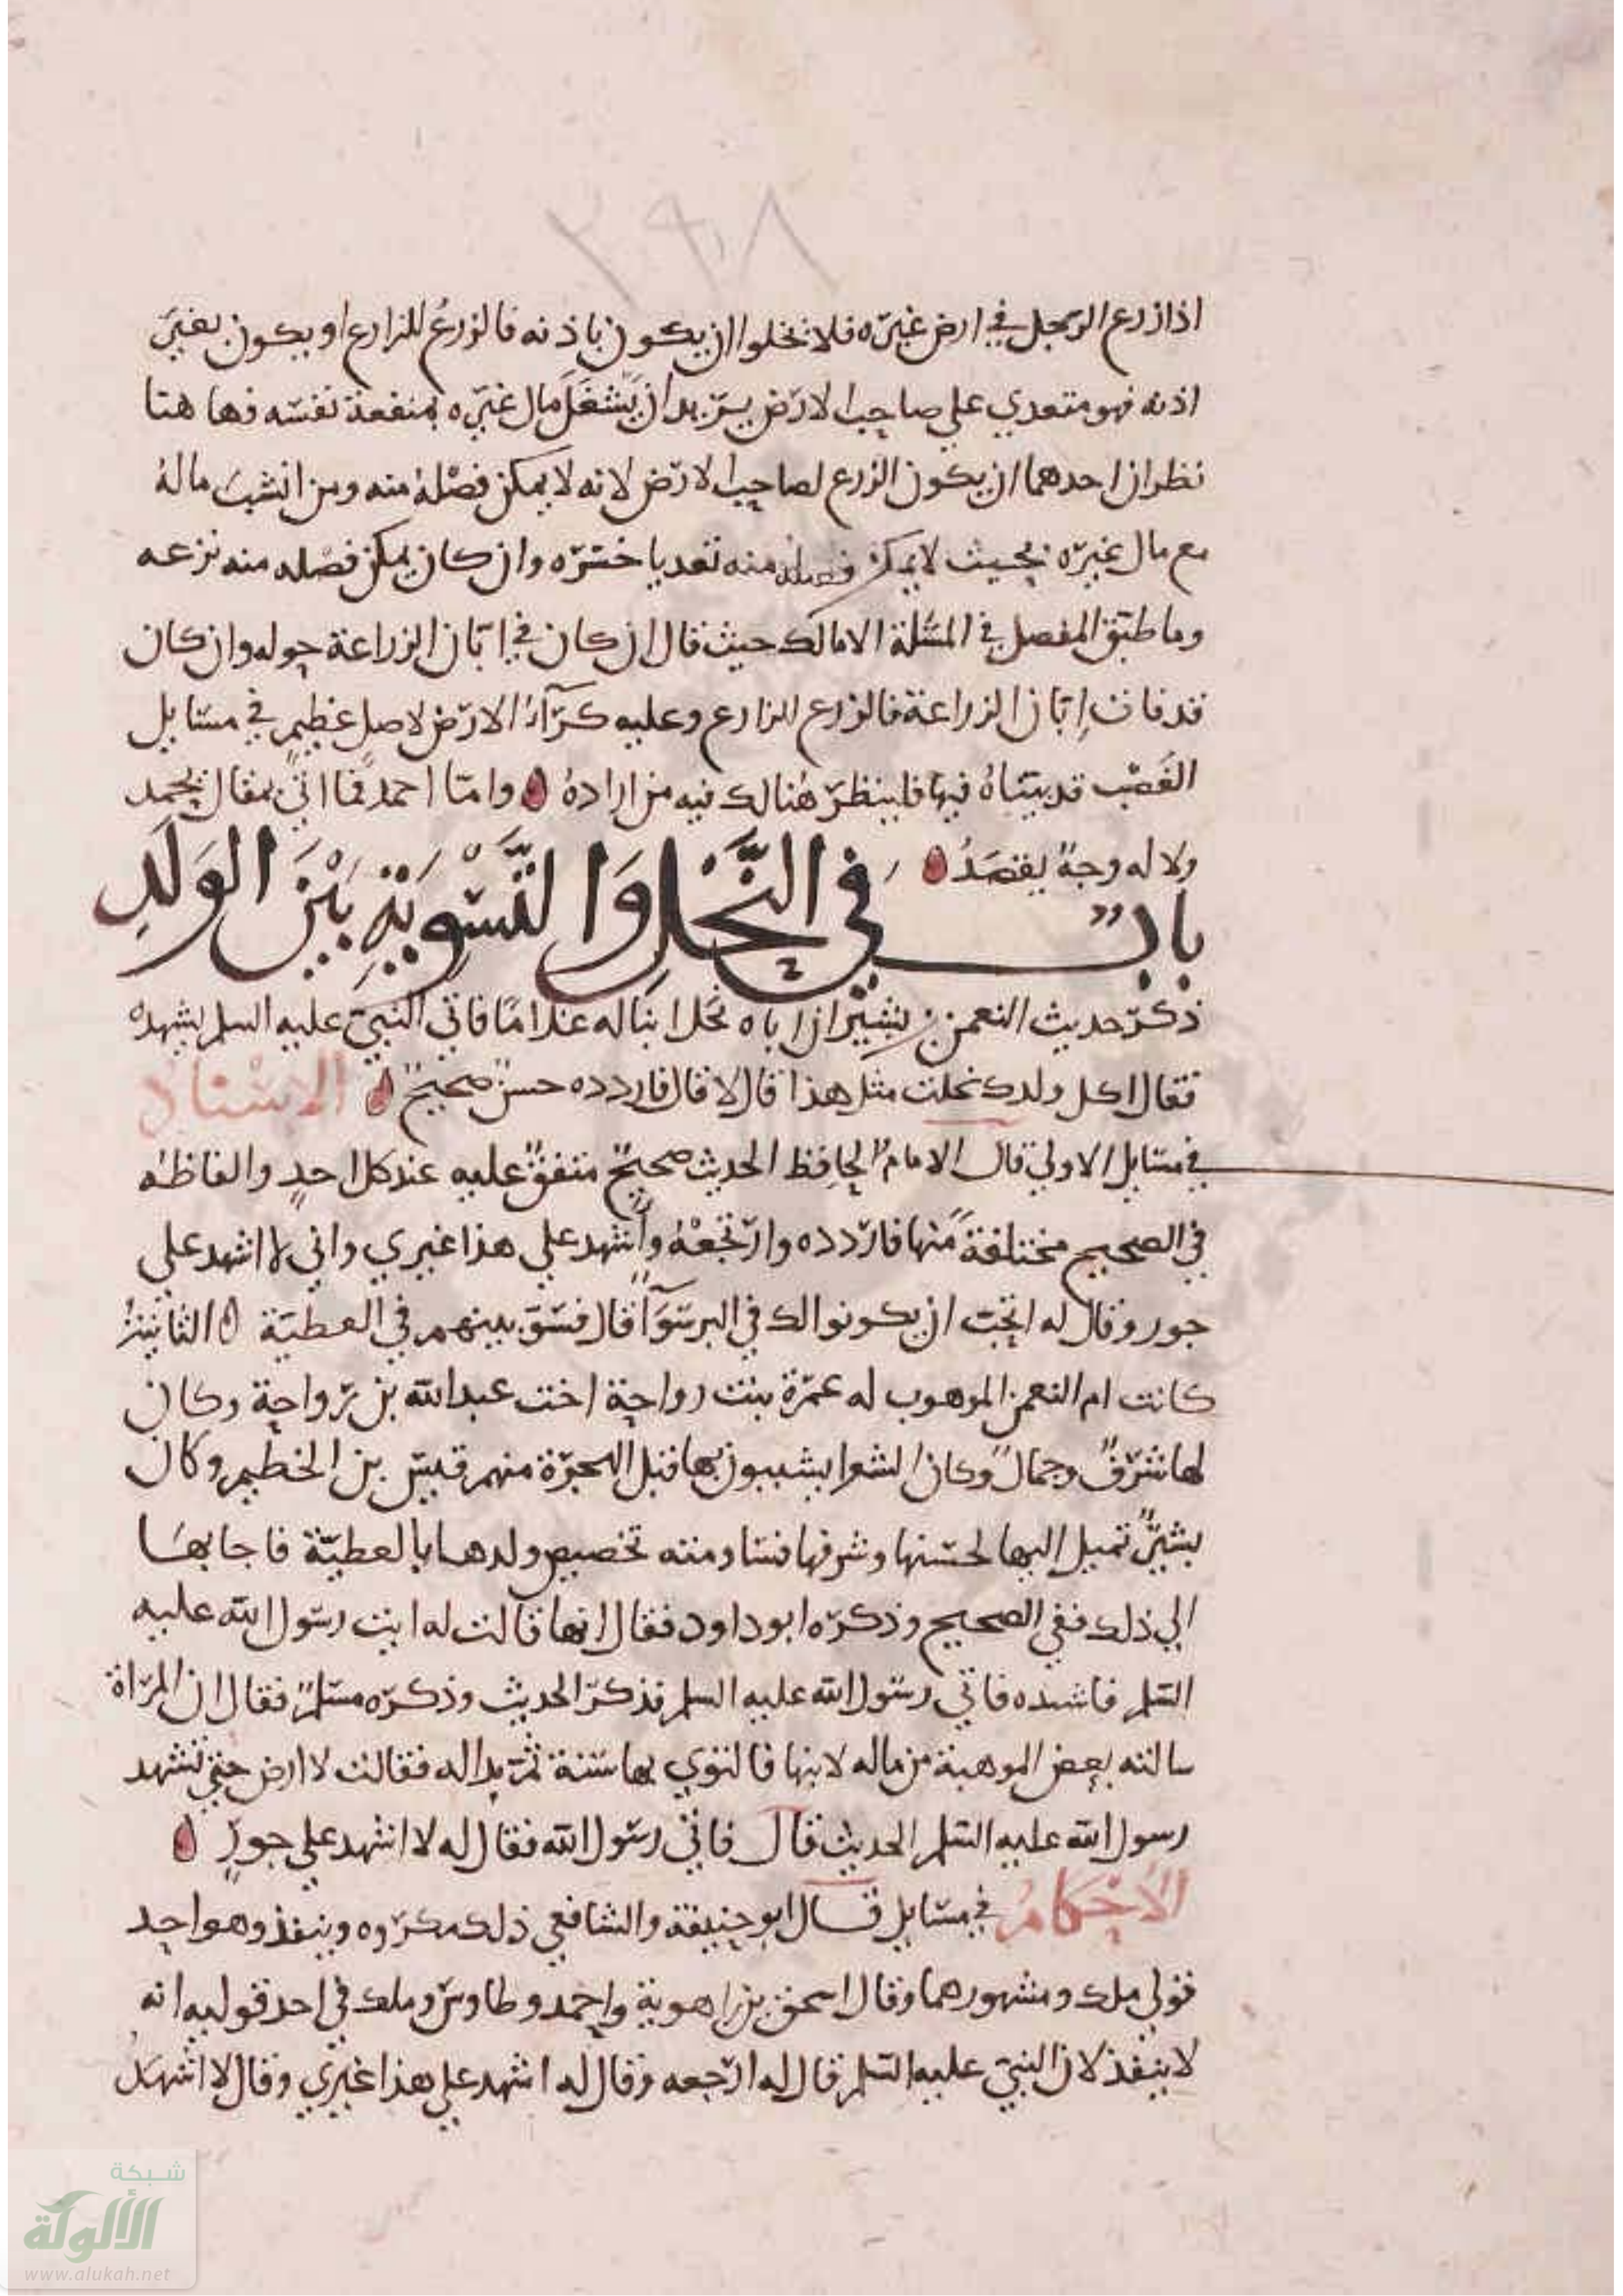 ٢٩٨
اذا زرع الرجل في ارض غيره فلا يخلوا ان يكون باذنه فالزرع للزارع او يكون بغير
اذنه فهو متعدي علي صاحب الارض يريد ان يشغل مال غيره بمنفعة نفسه فها هنا
نظران احدهما ان يكون الزرع لصاحب الارض لانه لا يمكن فصله منه ومن انشب ماله
مع مال غيره بحيث لا يمكن فصله منه تعديا خسره وان كان يمكن فصله منه نزعه
وما طبق المفصل في المسئلة الا مالك حيث قال ان كان في ابّان الزراعة حوله وان كان
قد فات ابّان الزراعة فالزرع للزارع وعليه كرآء الارض لاصل عظيم في مسايل
الغصب قد بيناه فيها فلينظر هنالك فيه من اراده واما احمد فما اتي بمقال يحمد
ولا له وجه يقصد
باب في النحل والتسوية بين الولد
ذكر حديث النعمن بن بشير ان اباه نحل ابنا له غلاما فاتي النبي عليه السلم يشهده
فقال اكل ولدك نحلت مثل هذا قال لا قال فاردده حسن صحيح الاسناد
في مسايل الاولي قال الامام الحافظ الحديث صحيح متفق عليه عند كل احد والفاظه
في الصحيح مختلفة منها فاردده وارتجعه واشهد علي هذا غيري واني لا اشهد علي
جور وقال له اتحب ان يكونوا لك في البر سوآ قال فسوّ بينهم في العطية الثانية
كانت ام النعمن الموهوب له عمرة بنت رواحة اخت عبد الله بن رواحة وكان
لها شرف وجمال وكان الشعرا يشببون بها قبل الهجرة منهم قيس بن الخطيم وكان
بشير تميل اليها لحسنها وشرفها فسا ومته تخصيص ولدها بالعطية فاجابها
الي ذلك ففي الصحيح وذكره ابو داود فقال انها قالت له ايت رسول الله عليه
السلم فاشهده فاتي رسول الله عليه السلم فذكر الحديث وذكره مسلم فقال ان المراة
سالته بعض الموهبة من ماله لابنها فالتوي بها سنة ثم بدا له فقالت لا ارضي حتي تشهد
رسول الله عليه السلم الحديث قال فاتي رسول الله فقال له لا اشهد علي جور
الاحكام في مسايل قال ابو حنيفة والشافعي ذلك مكروه وينفذ وهو احد
قولي ملك ومشهورهما وقال اسحق بن راهوية واحمد وطاوس وملك في احد قوليه انه
لا ينفذ لان النبي عليه السلم قال له ارجعه وقال له اشهد علي هذا غيري وقال لا اشهد
شبكة
الألوكة
www.alukah.net